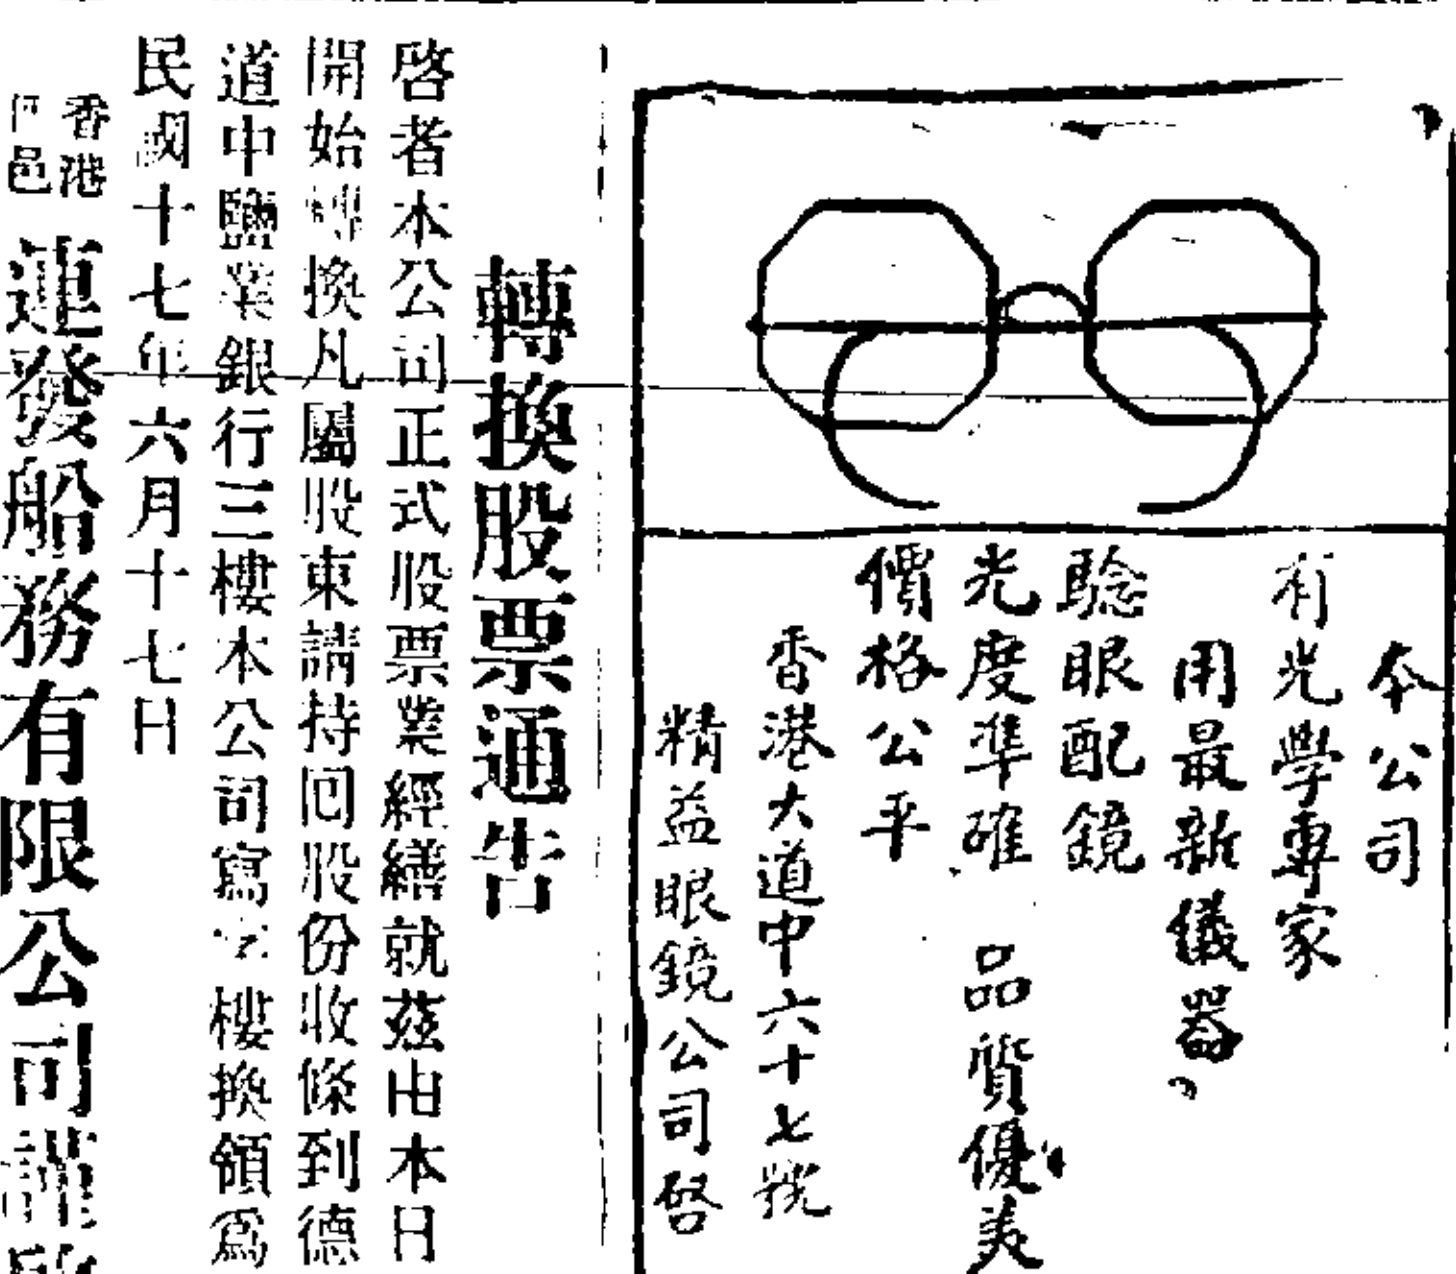 本公司
有光學專家
用最新儀器
驗眼配鏡
光度準確 品質優美
價格公平
香港大道中六十七號
精益眼鏡公司啓
轉換股票通告
啓者本公司正式股票業經繕就茲由本日
開始轉換凡屬股東請持回股份收條到德
道中鹽業銀行三樓本公司寫字樓換領爲
民國十七年六月十七日
香港
連發船務有限公司謹啓